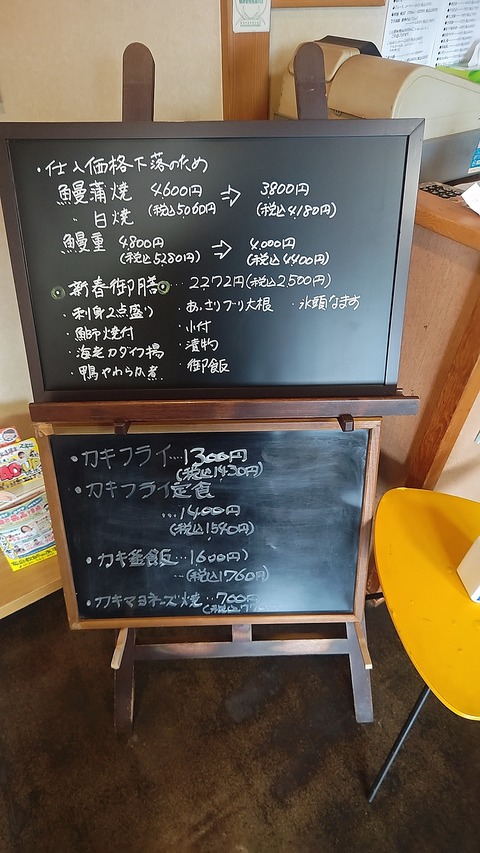 ・仕入価格下落のため
鰻蒲焼 4600円 ⇨ 3800円
(税込5060円 (税込4180円)
〃 白焼
鰻重 4800円 ⇨ 4.000円
(税込5280円) (税込4400円)
◎新春御膳◎‥2272円(税込2500円)
・刺身2点盛り ・あっさりブリ大根 ・氷頭なます
・鰤焼付 ・小付
・海老カダイフ揚 ・漬物
・鴨やわらか煮 ・御飯
・カキフライ…1300円
(税込1430円)
・カキフライ定食
…1400円
(税込1540円)
・カキ釜飯…1600円
…(税込1760円)
・カキマヨネーズ焼…700円